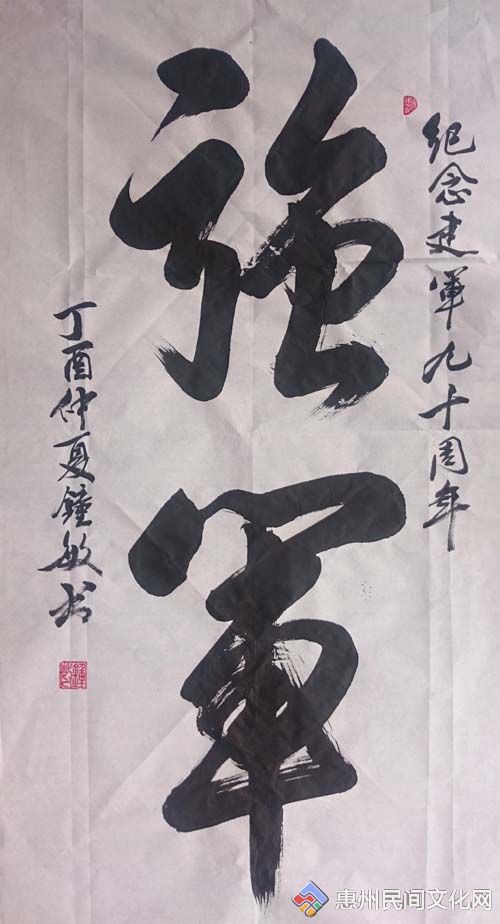 纪念建军九十周年
強軍
丁酉仲夏鐘敏书
惠州民间文化网